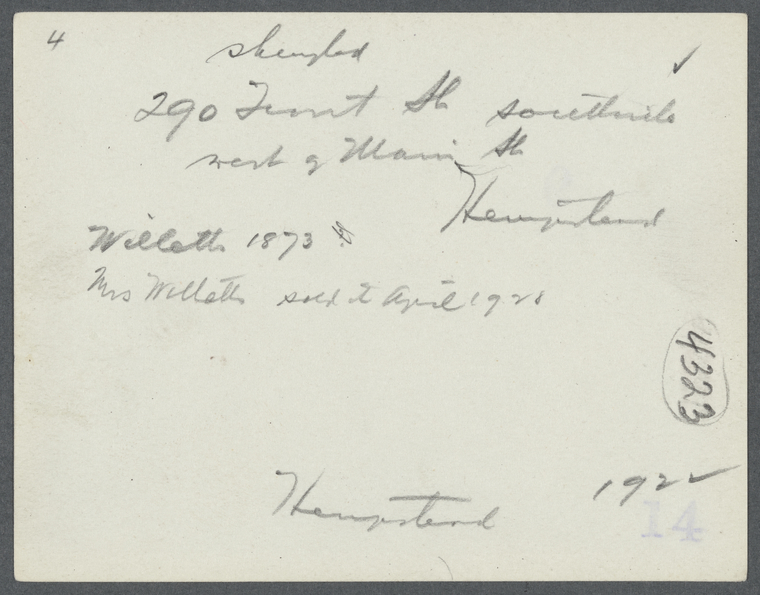 4
shingled
290 Front St southside
west of Main St
Hempstead
Willetts 1873
Mrs Willetts sold it April 1920
4323
Hempstead 1922
14